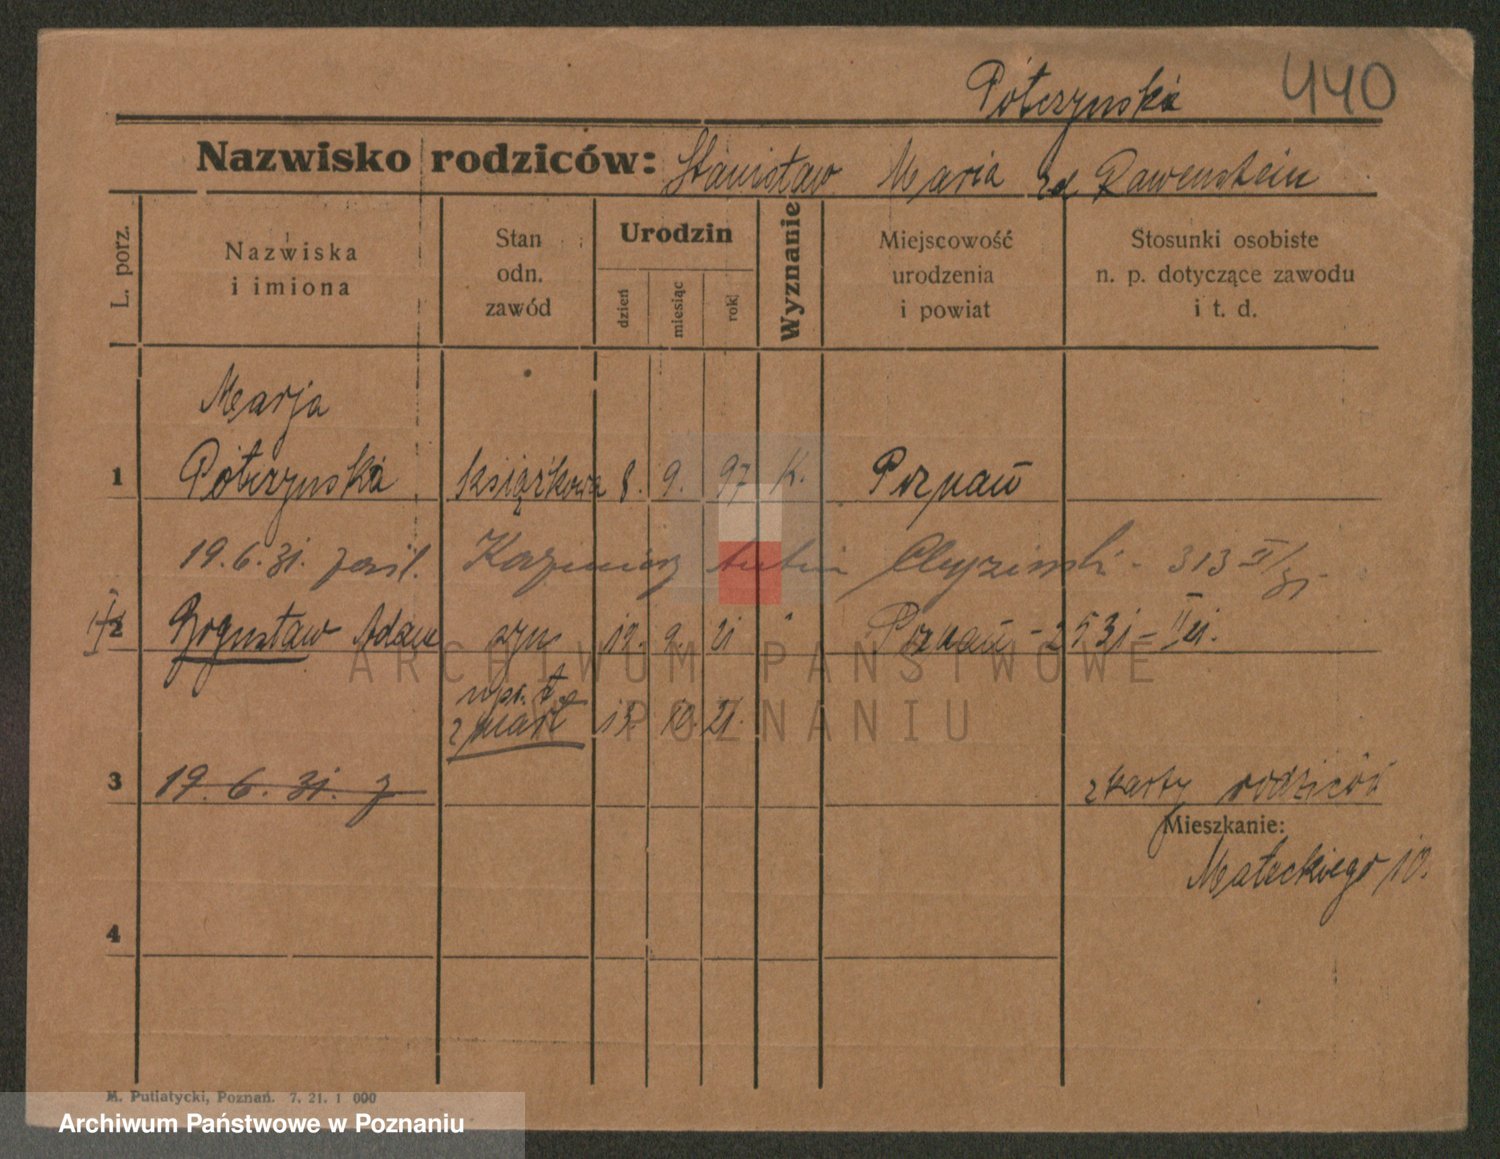 Półczyńska 440
Nazwisko rodziców: Stanisław Maria zd Rawenstein
L. porz.
Nazwiska
i imiona
Stan
odn.
zawód
Urodzin
dzień
miesiąc
rok
Wyznanie
Miejscowość
urodzenia
i powiat
Stosunki osobiste
n. p. dotyczące zawodu
i t. d.
Marja
1 Półczyńska książkowa 8. 9. 97 K. Poznań
19. 6. 31. zaśl. Kazimierz 313 II/31
2 Bogusław Adam syn 12. 9. 21 " Poznań - 2531 - II 21.
zmarł 13. 10. 21.
3 19. 6. 31. z
z karty rodziców
Mieszkanie:
Małeckiego 10.
4
M. Putiatycki, Poznań. 7. 21. 1 000
ARCHIWUM PAŃSTWOWE
W POZNANIU
Archiwum Państwowe w Poznaniu